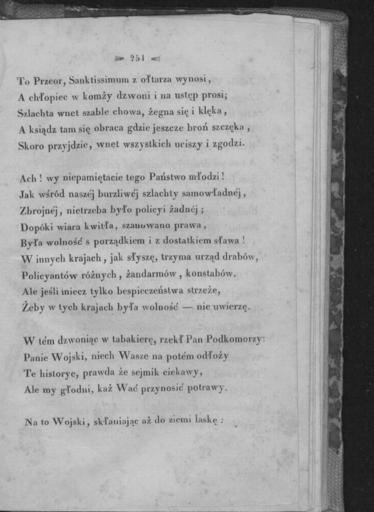 251
To Przeor, Sanktissimum z ołtarza wynosi,
A chłopiec w komży dzwoni i na ustęp prosi;
Szlachta wnet szable chowa, żegna się i klęka,
A ksiądz tam się obraca gdzie jeszcze broń szczęka,
Skoro przyjdzie, wnet wszystkich uciszy i zgodzi.
Ach! wy niepamiętacie tego Państwo młodzi!
Jak wśród naszéj burzliwéj szlachty samowładnéj,
Zbrojnéj, nietrzeba było policyi żadnéj;
Dopóki wiara kwitła, szanowano prawa,
Była wolność s porządkiem i z dostatkiem sława!
W innych krajach, jak słyszę, trzyma urząd drabów,
Policyantów różnych, żandarmów, konstabów.
Ale jeśli miecz tylko bespieczeństwa strzeże,
Żeby w tych krajach była wolność — nie uwierzę.
W tém dzwoniąc w tabakierę, rzekł Pan Podkomorzy:
Panie Wojski, niech Wasze na potém odłoży
Te historye, prawda że sejmik ciekawy,
Ale my głodni, każ Wać przynosić potrawy.
Na to Wojski, skłaniając aż do ziemi laskę: